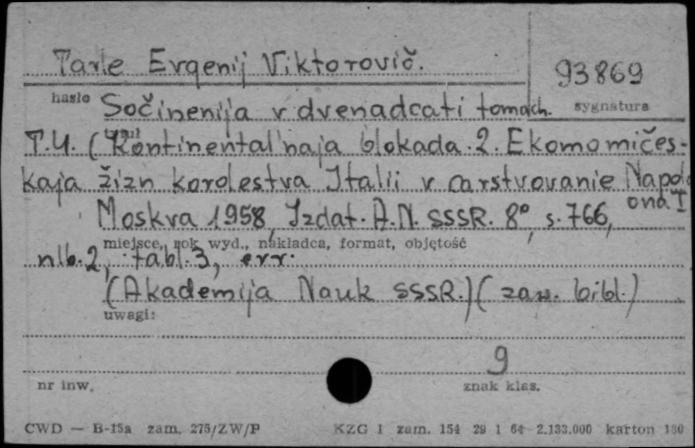 Tarle Evgenij Viktorovič.
93869
hasło Sočinenija v dvenadcati tomach. sygnatura
T.4. (Kontinental'naja blokada. 2. Ekomomičes-
kaja žizn korolestva Italii v carstvovanie Napole
ona I
Moskva 1958, Izdat. A.N. SSSR. 8°, s. 766,
miejsce, rok wyd., nakładca, format, objętość
nlb. 2, tabl. 3, err.
(Akademija Nauk SSSR.) (zaw. bibl.)
uwagi:
9
nr inw. znak klas.
CWD — B-15a zam. 275/ZW/P KZG 1 zam. 154 29 1 64 2.133.000 karton